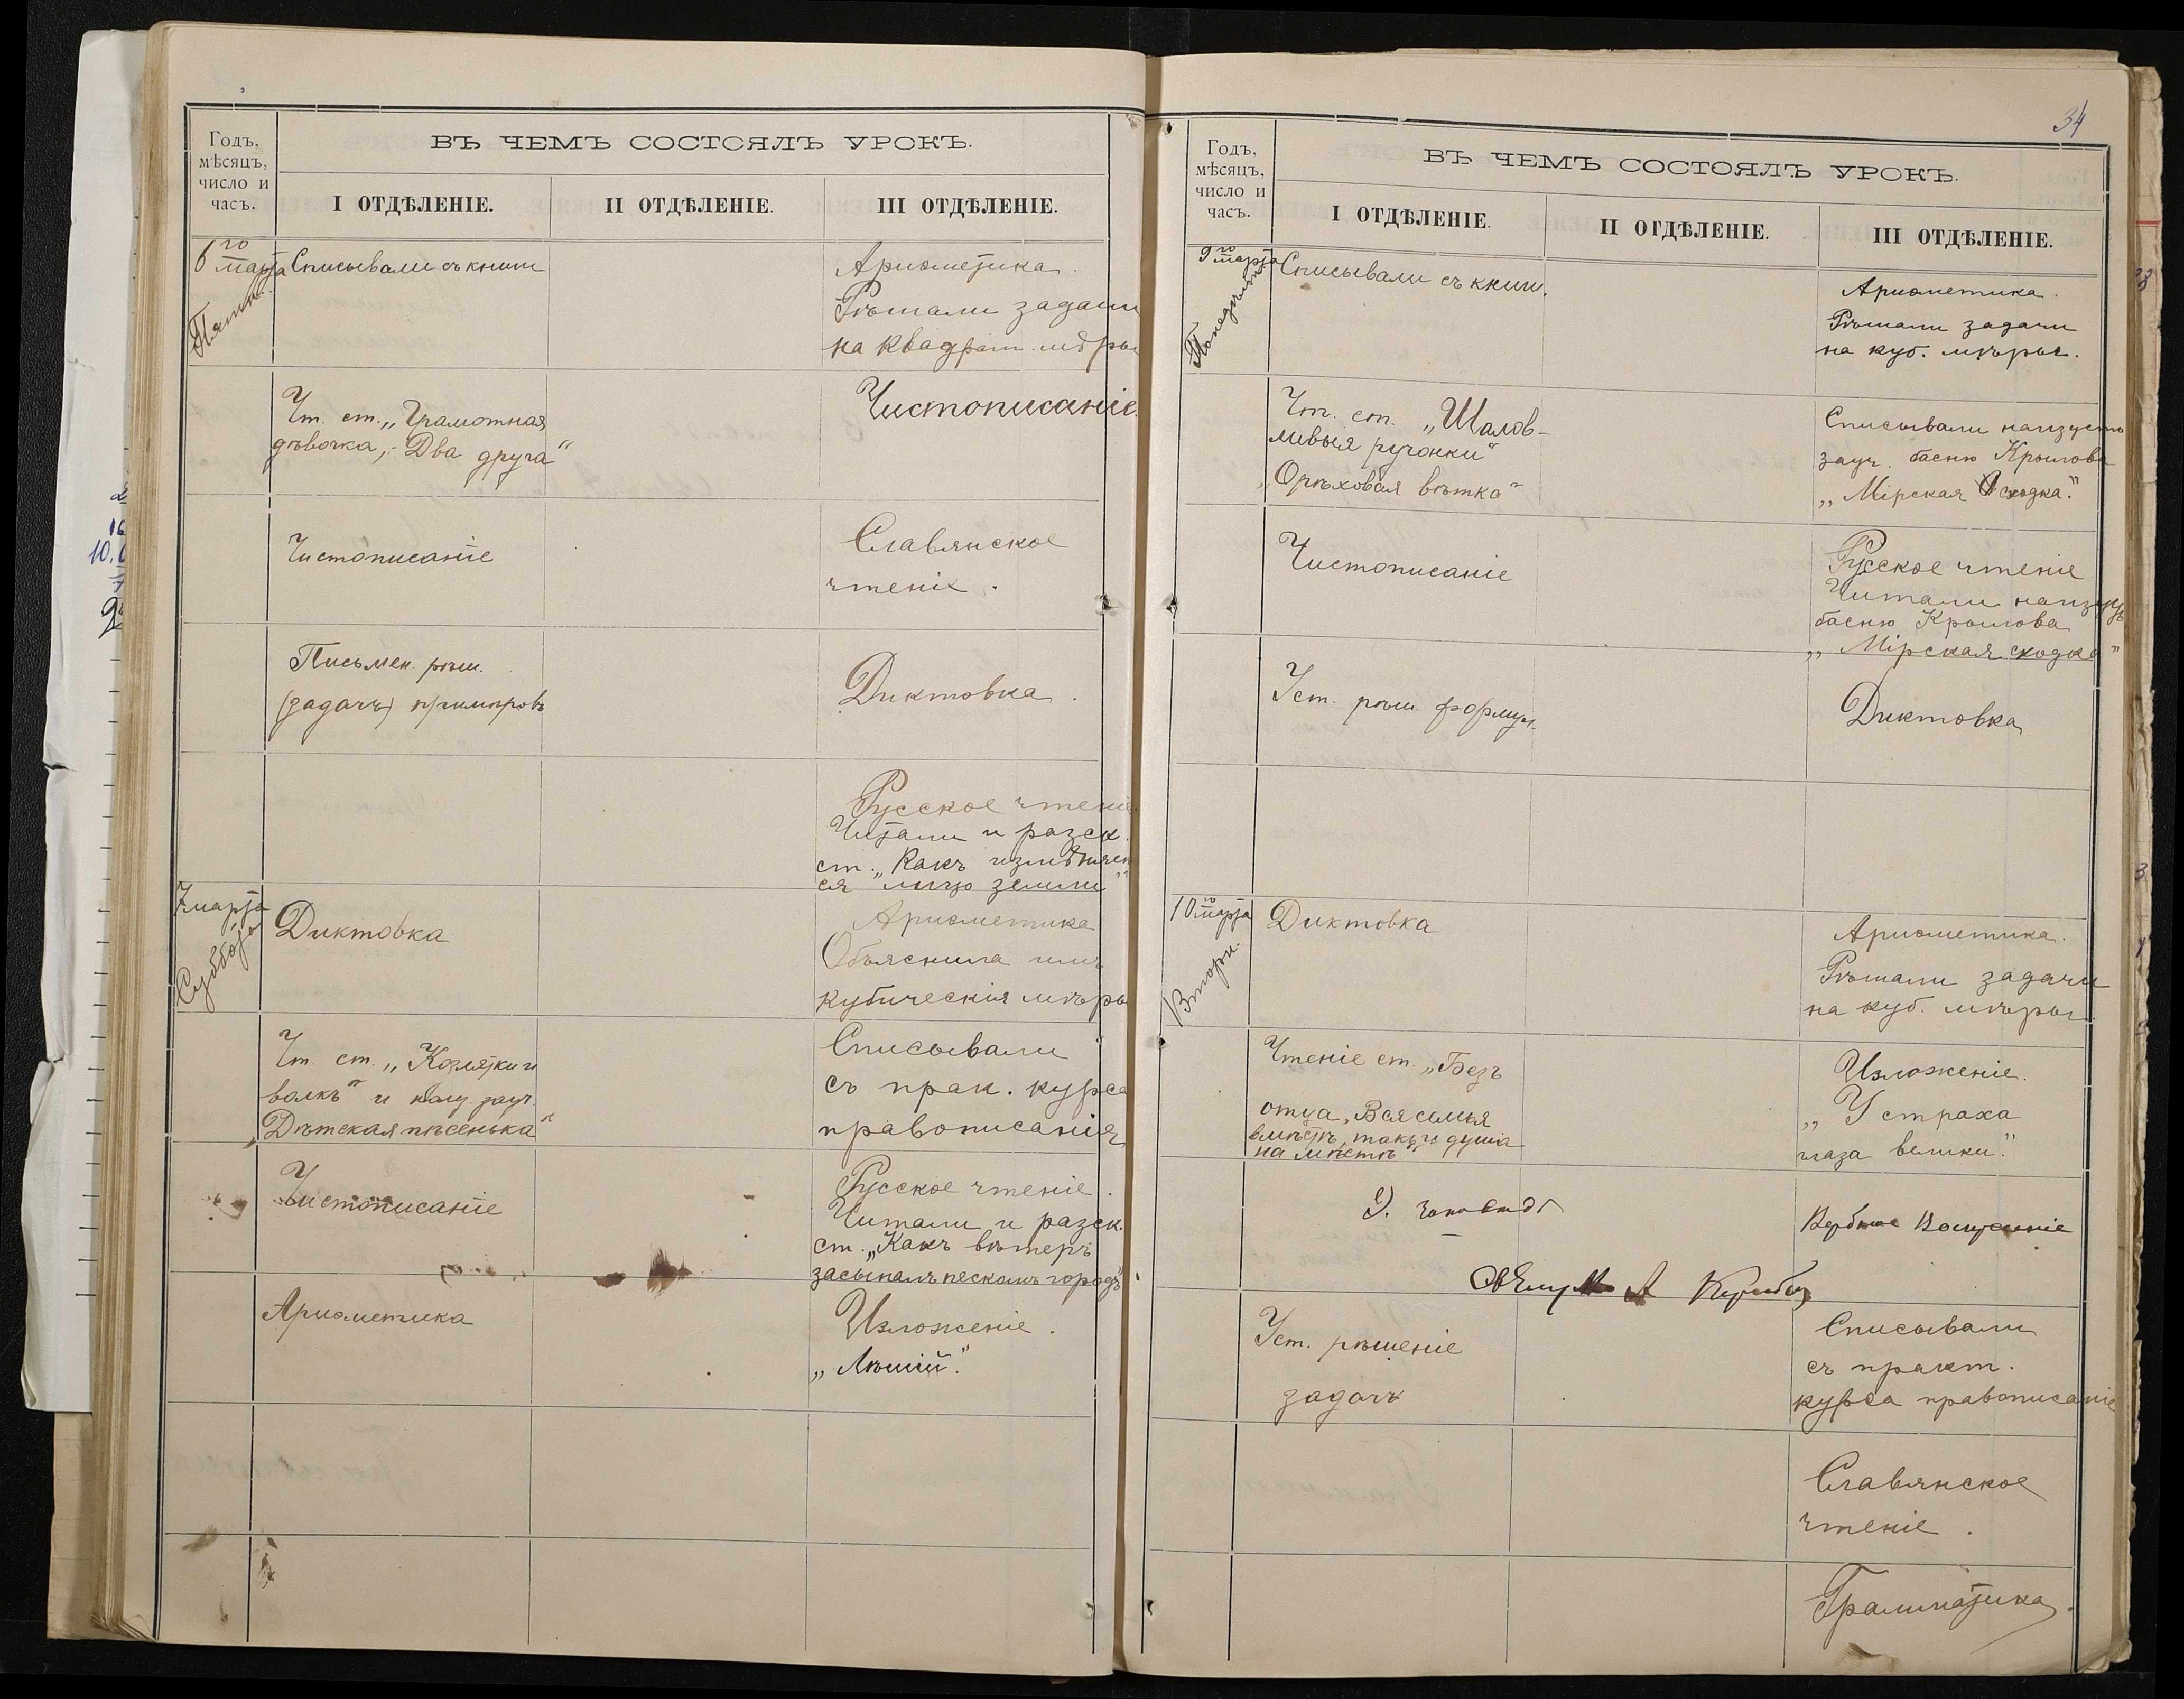 Годъ,
мѣсяцъ,
число и
часъ.
ВЪ ЧЕМЪ СОСТОЯЛЪ УРОКЪ.
I ОТДѢЛЕНІЕ.
II ОТДѢЛЕНІЕ.
III ОТДѢЛЕНІЕ.
6го марта
Пятн.
Списывали съ книги
Ариѳметика.
Рѣшали задачи
на квадрат. мѣры
Чт. ст. „Грамотная
дѣвочка, - Два друга“
Чистописаніе.
Чистописаніе
Славянское
чтеніе.
Письмен. рѣш.
(задачъ) примѣровъ
Диктовка.
Русское чтеніе
Читали и разск.
ст. „Какъ измѣняет
ся лицо земли“
7 марта
Суббота
Диктовка
Ариѳметика
Объяснила имъ
кубическія мѣры
Чт. ст. „Козлятки и
волкъ“ и наиз. зауч.
„Дѣтская пѣсенька“
Списывали
съ прак. курса
правописанія
Чистописаніе
Русское чтеніе.
Читали и разск.
ст. „Какъ вѣтеръ
засыпалъ пескомъ городъ“
Ариѳметика
Изложеніе.
„Лѣшій“.
34
Годъ,
мѣсяцъ,
число и
часъ.
ВЪ ЧЕМЪ СОСТОЯЛЪ УРОКЪ.
I ОТДѢЛЕНІЕ.
II ОТДѢЛЕНІЕ.
III ОТДѢЛЕНІЕ.
9го марта
Понедѣльн.
Списывали съ книги.
Ариѳметика.
Рѣшали задачи
на куб. мѣры.
Чт. ст. „Шалов-
ливыя ручонки“
„Орѣховая вѣтка“
Списывали наизусть
зауч. басню Крылова
„Мірская сходка“.
Чистописаніе
Русское чтеніе
Читали наизусть
басню Крылова
„Мірская сходка“
Уст. рѣш. формул.
Диктовка
10го марта
Вторн.
Диктовка
Ариѳметика.
Рѣшали задачи
на куб. мѣры
Чтеніе ст. „Безъ
отца, Вся семья
вмѣстѣ, такъ и душа
на мѣстѣ“
Изложеніе.
„У страха
глаза велики“.
Уст. рѣшеніе
задачъ
Списывали
съ практ.
курса правописанія
Славянское
чтеніе.
Грамматика.